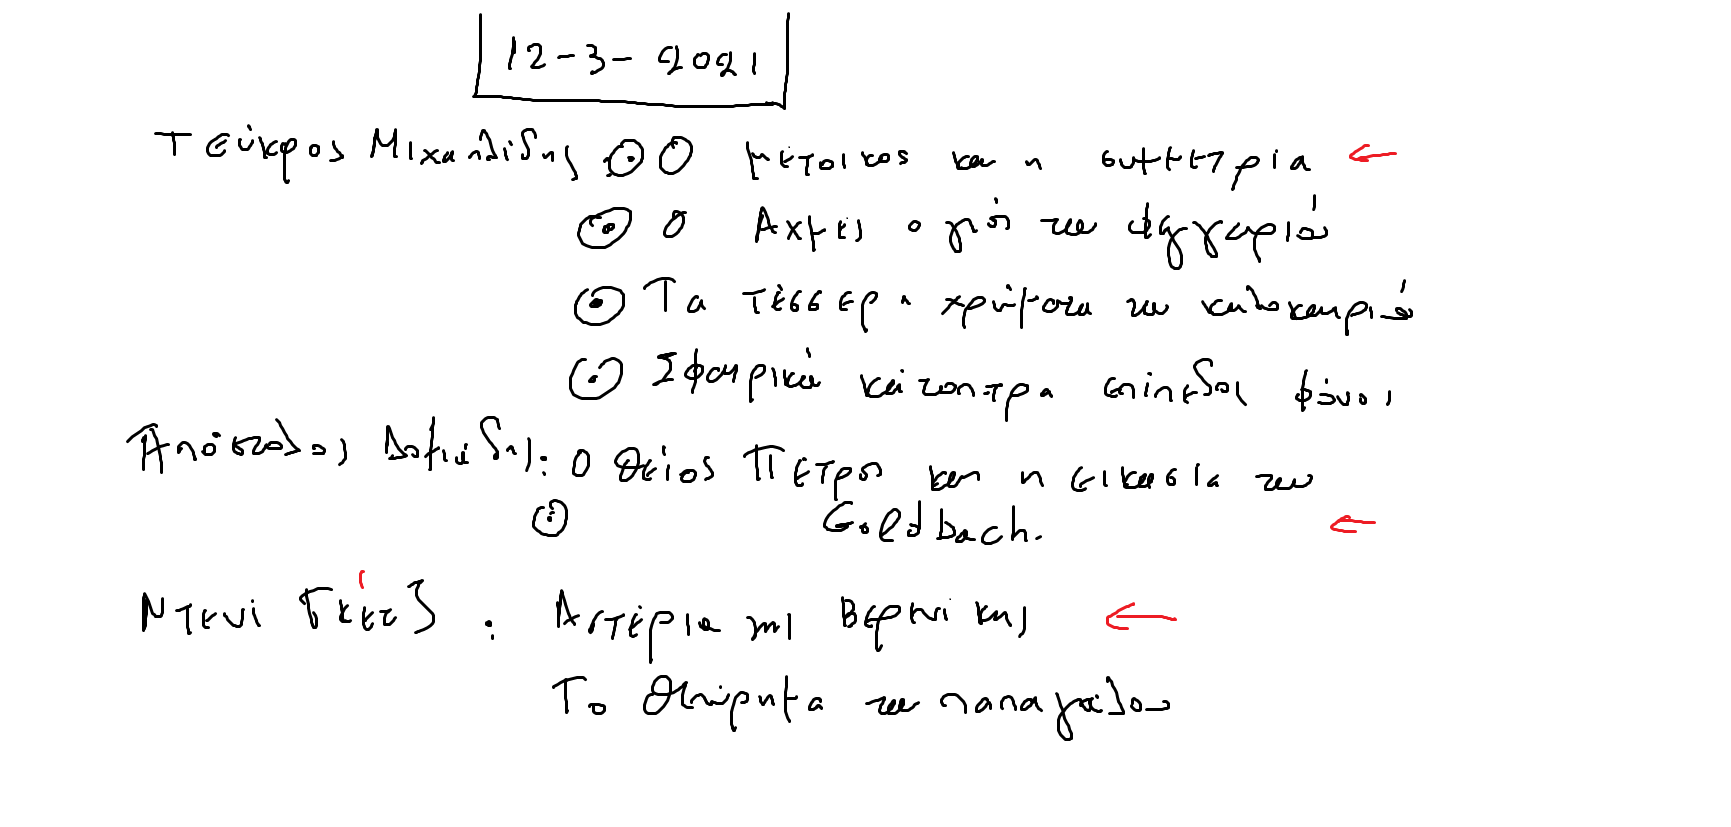 12-3-2021
Τεύκρος Μιχαηλίδης Ο μέτοικος και η συμμετρία
Ο Αχμές ο γιός του φεγγαριού
Τα τέσσερα χρώματα του καλοκαιριού
Σφαιρικά κάτοπτρα επίπεδοι φόνοι
Απόστολος Δοξιάδης: Ο θείος Πετρος και η εικασία του
Goldbach.
Ντενί Γκέτζ: Αστέρια της Βερενίκης
Το θεώρημα του παπαγάλου